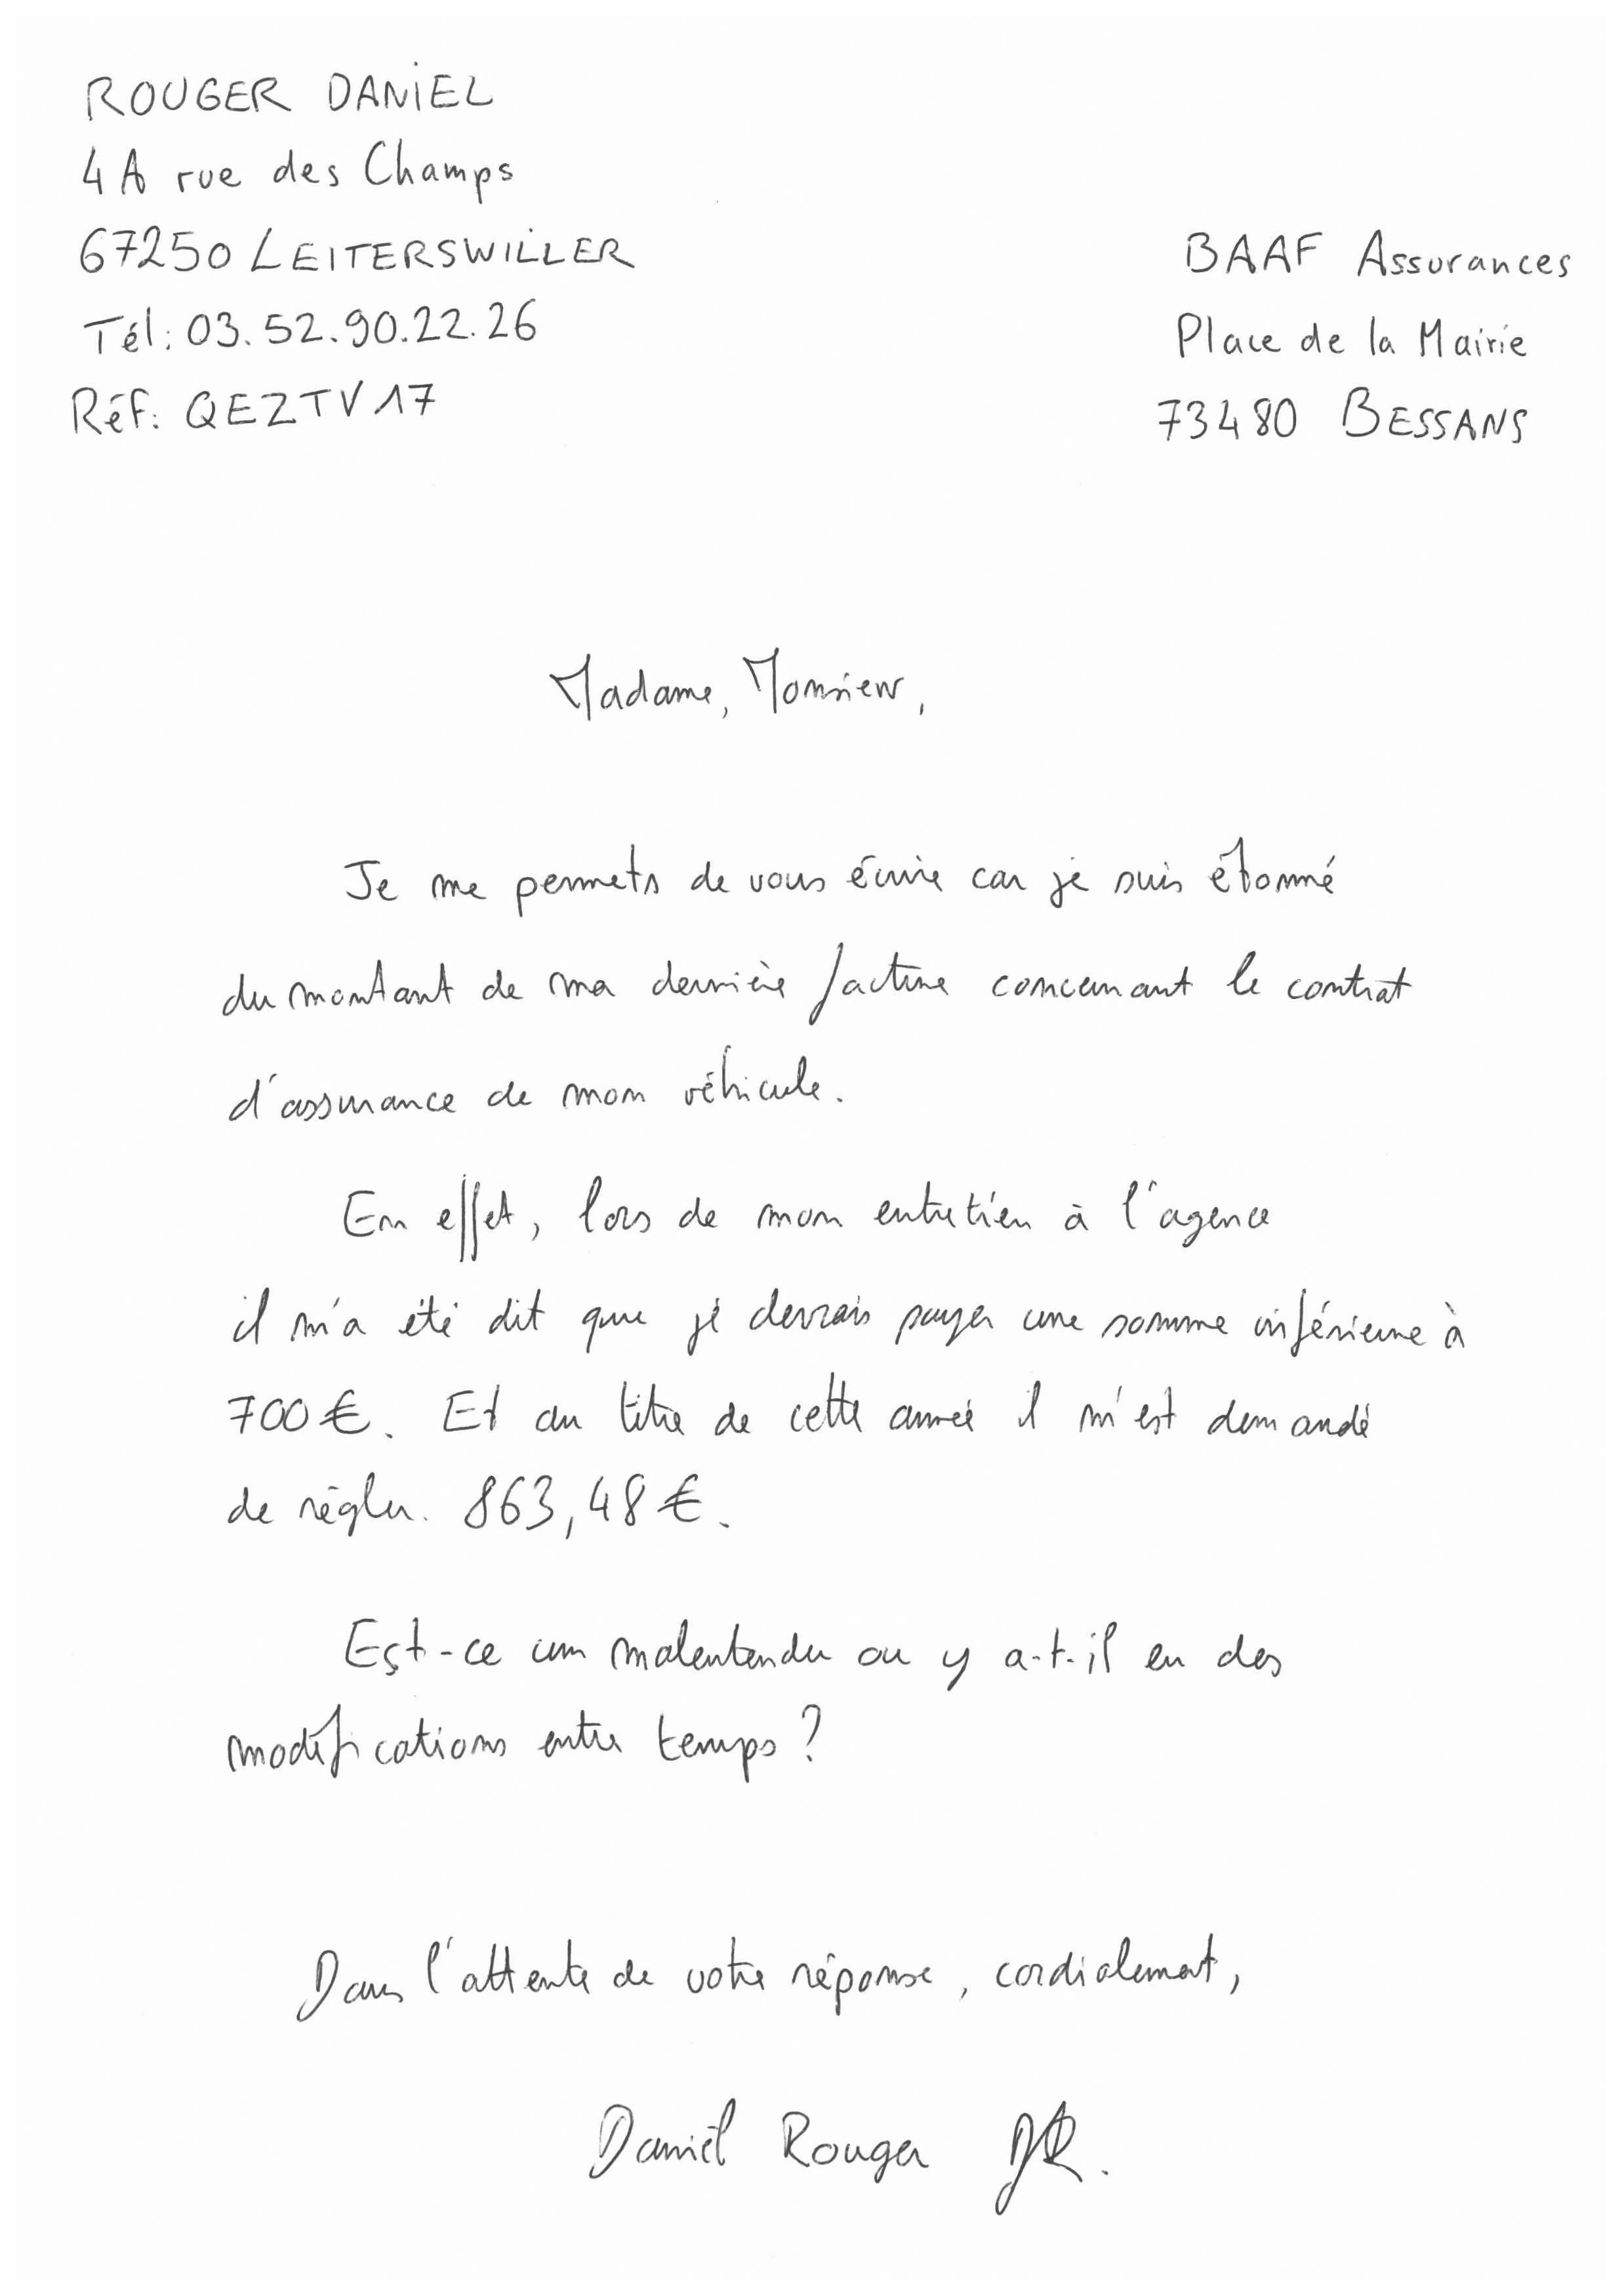 ROUGER DANIEL
4A rue des Champs
67250 LEITERSWILLER
Tél: 03.52.90.22.26
Réf: QEZTV17
BAAF Assurances
Place de la Mairie
73480 BESSANS
Madame, Monsieur,
Je me permets de vous écrire car je suis étonné
du montant de ma dernière facture concernant le contrat
d'assurance de mon véhicule.
En effet, lors de mon entretien à l'agence
il m'a été dit que je devrais payer une somme inférieure à
700€. Et au titre de cette année il m'est demandé
de régler. 863,48€.
Est-ce un malentendu ou y a-t-il eu des
modifications entre temps ?
Dans l'attente de votre réponse, cordialement,
Daniel Rouger DR.